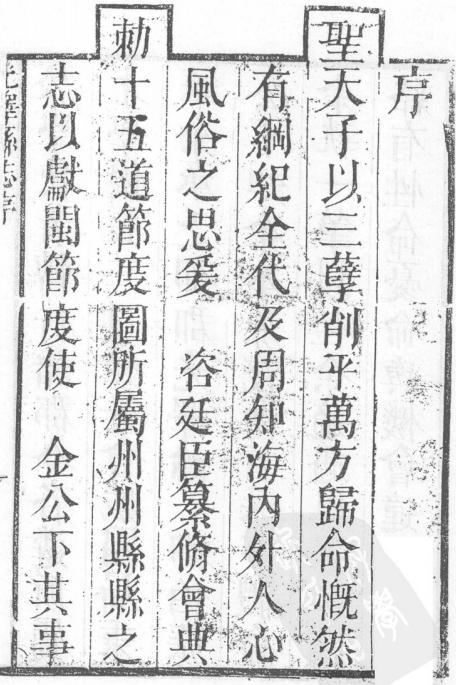 序
聖天子以三孽削平萬方歸命慨然
有綱紀全代及周知海內外人心
風俗之思爰 咨廷臣纂脩會典
勅十五道節度圖所屬州州縣縣之
志以獻閩節度使 金公下其事
光澤縣志序